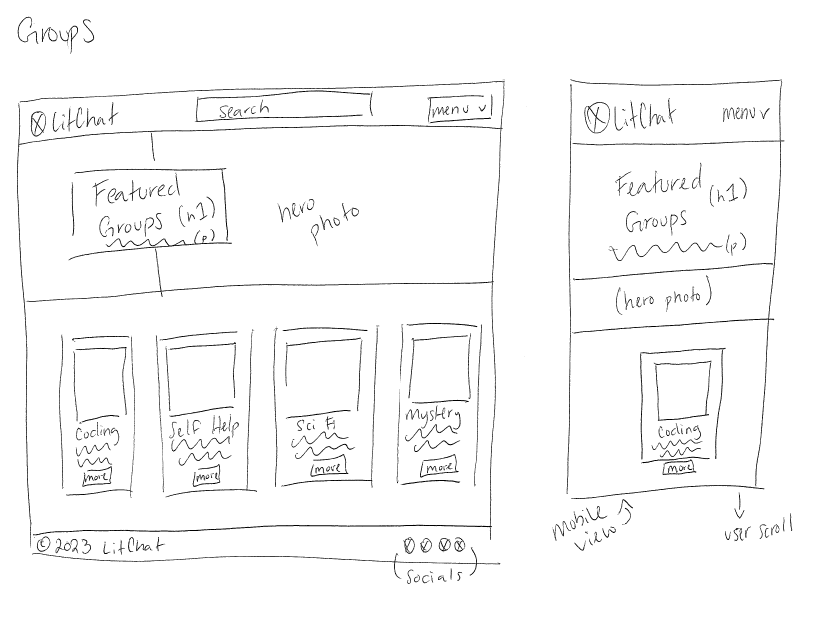 Groups
LitChat
Search
menu v
Featured
Groups (h1)
(p)
hero
photo
Coding
more
Self Help
more
Sci Fi
more
Mystery
more
© 2023 LitChat
(socials)
LitChat
menu v
Featured
Groups (h1)
(p)
(hero photo)
Coding
more
mobile
view
user scroll